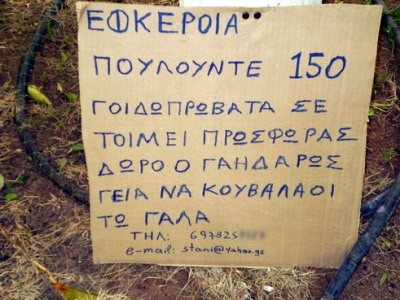 ΕΦΚΕΡΟΙΑ
ΠΟΥΛΟΥΝΤΕ 150
ΓΟΙΔΩΠΡΩΒΑΤΑ ΣΕ
ΤΟΙΜΕΙ ΠΡΩΣΦΩΡΑΣ
ΔΩΡΟ Ο ΓΑΗΔΑΡΩΣ
ΓΕΙΑ ΝΑ ΚΟΥΒΑΛΑΟΙ
ΤΩ ΓΑΛΑ
ΤΗΛ: 697825
e-mail: stani@yahoo.gr